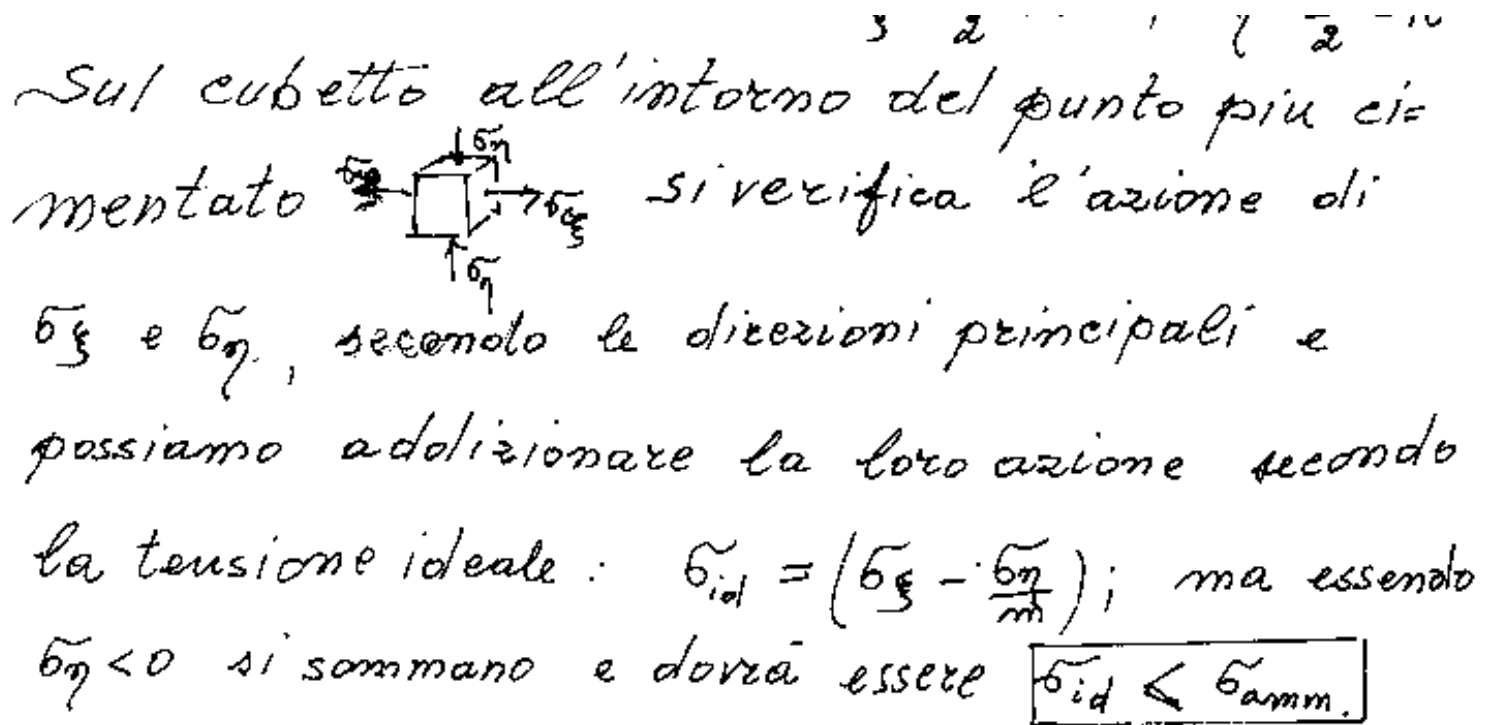 Sul cubetto all'intorno del punto piu ci=
mentato ση σξ ση si verifica l'azione di
σξ e ση, secondo le direzioni principali e
possiamo addizionare la loro azione secondo
la tensione ideale: σid = (σξ - ση/m); ma essendo
ση<0 si sommano e dovrà essere σid ≤ σamm.